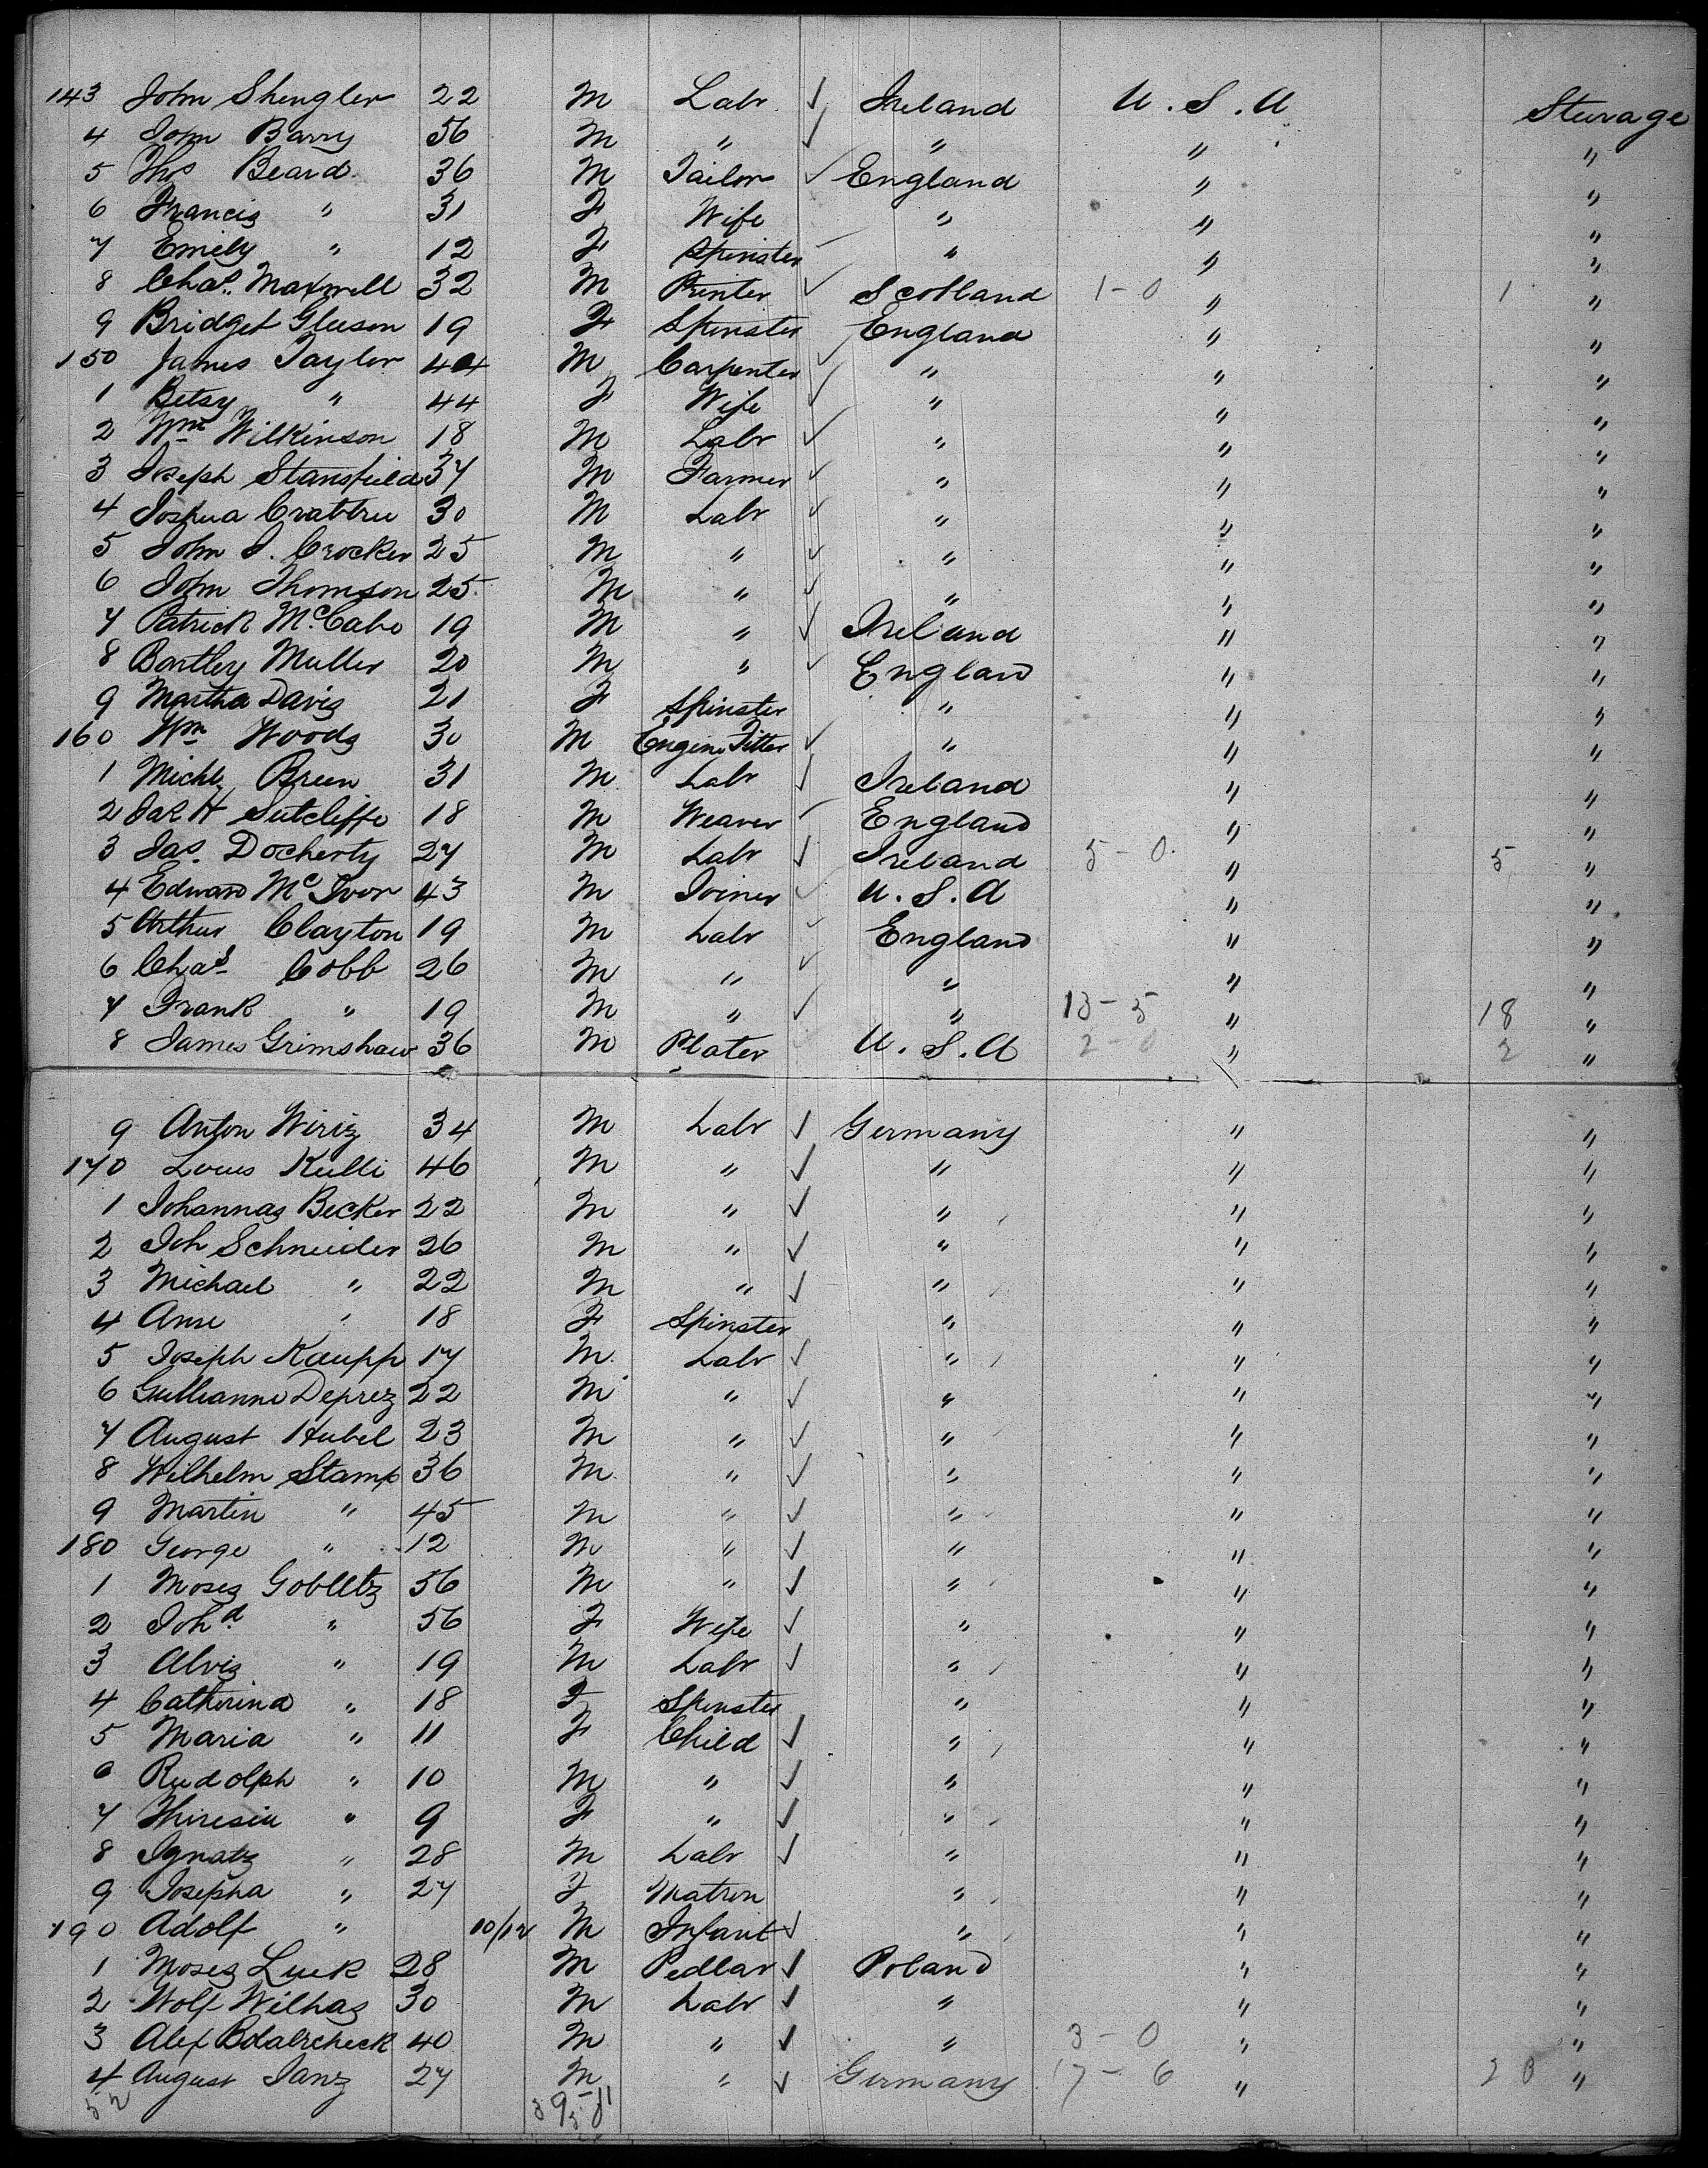 143 John Shengler 22 M Labr ✓ Ireland U.S.A Sturage
4 John Barry 56 M " ✓ " " "
5 Thos Beard 36 M Tailor ✓ England " "
6 Francis " 31 F Wife " " "
7 Emily " 12 F Spinster " " "
8 Chas. Maxwell 32 M Printer ✓ Scotland 1-0 " 1 "
9 Bridget Gleeson 19 F Spinster England " "
150 James Taylor 44 M Carpenter ✓ " " "
1 Betsy " 44 F Wife ✓ " " "
2 Wm Wilkinson 18 M Labr ✓ " " "
3 Joseph Stansfield 37 M Farmer ✓ " " "
4 Joshua Crabtree 30 M Labr ✓ " " "
5 John J. Crocker 25 M " ✓ " " "
6 John Thomson 25 M " ✓ " " "
7 Patrick McCabe 19 M " ✓ Ireland " "
8 Bartley Muller 20 M " ✓ England " "
9 Martha Davis 21 F Spinster " " "
160 Wm Woods 30 M Engine Fitter ✓ " " "
1 Michl Breen 31 M Labr ✓ Ireland " "
2 H Sutcliffe 18 M Weaver ✓ England " "
3 Jas. Docherty 27 M Labr ✓ Ireland 5-0 " 5 "
4 Edward McIvor 43 M Joiner ✓ U.S.A " "
5 Arthur Clayton 19 M Labr ✓ England " "
6 Chas Cobb 26 M " ✓ " " "
7 Frank " 19 M " ✓ " 13-5 " 18 "
8 James Grimshaw 36 M Plater U.S.A 2-0 " 2 "
9 Anton Wiriz 34 M Labr ✓ Germany " "
170 Louis Kulli 46 M " ✓ " " "
1 Johannas Becker 22 M " ✓ " " "
2 Joh Schneider 26 M " ✓ " " "
3 Michael " 22 M " ✓ " " "
4 Anne " 18 F Spinster " " "
5 Joseph Kaupp 17 M Labr ✓ " " "
6 Gullianne Deprez 22 M " ✓ " " "
7 August Hubel 23 M " ✓ " " "
8 Wilhelm Stamp 36 M " ✓ " " "
9 Martin " 45 M " ✓ " " "
180 George " 12 M " ✓ " " "
1 Moses Gobletz 56 M " ✓ " " "
2 Johd " 56 F Wife ✓ " " "
3 Alvis " 19 M Labr ✓ " " "
4 Catherina " 18 F Spinster " " "
5 Maria " 11 F Child ✓ " " "
6 Rudolph " 10 M " ✓ " " "
7 Thiresia " 9 F " ✓ " " "
8 Ignatz " 28 M Labr ✓ " " "
9 Josepha " 27 F Matron " " "
190 Adolf " 10/12 M Infant ✓ " " "
1 Moses Luck 28 M Pedlar ✓ Poland " "
2 Wolf Wilhas 30 M Labr ✓ " " "
3 Alex 40 M " ✓ " 3-0 " "
4 August Janz 27 M " ✓ Germany 17-6 " 23 "
52 39-11